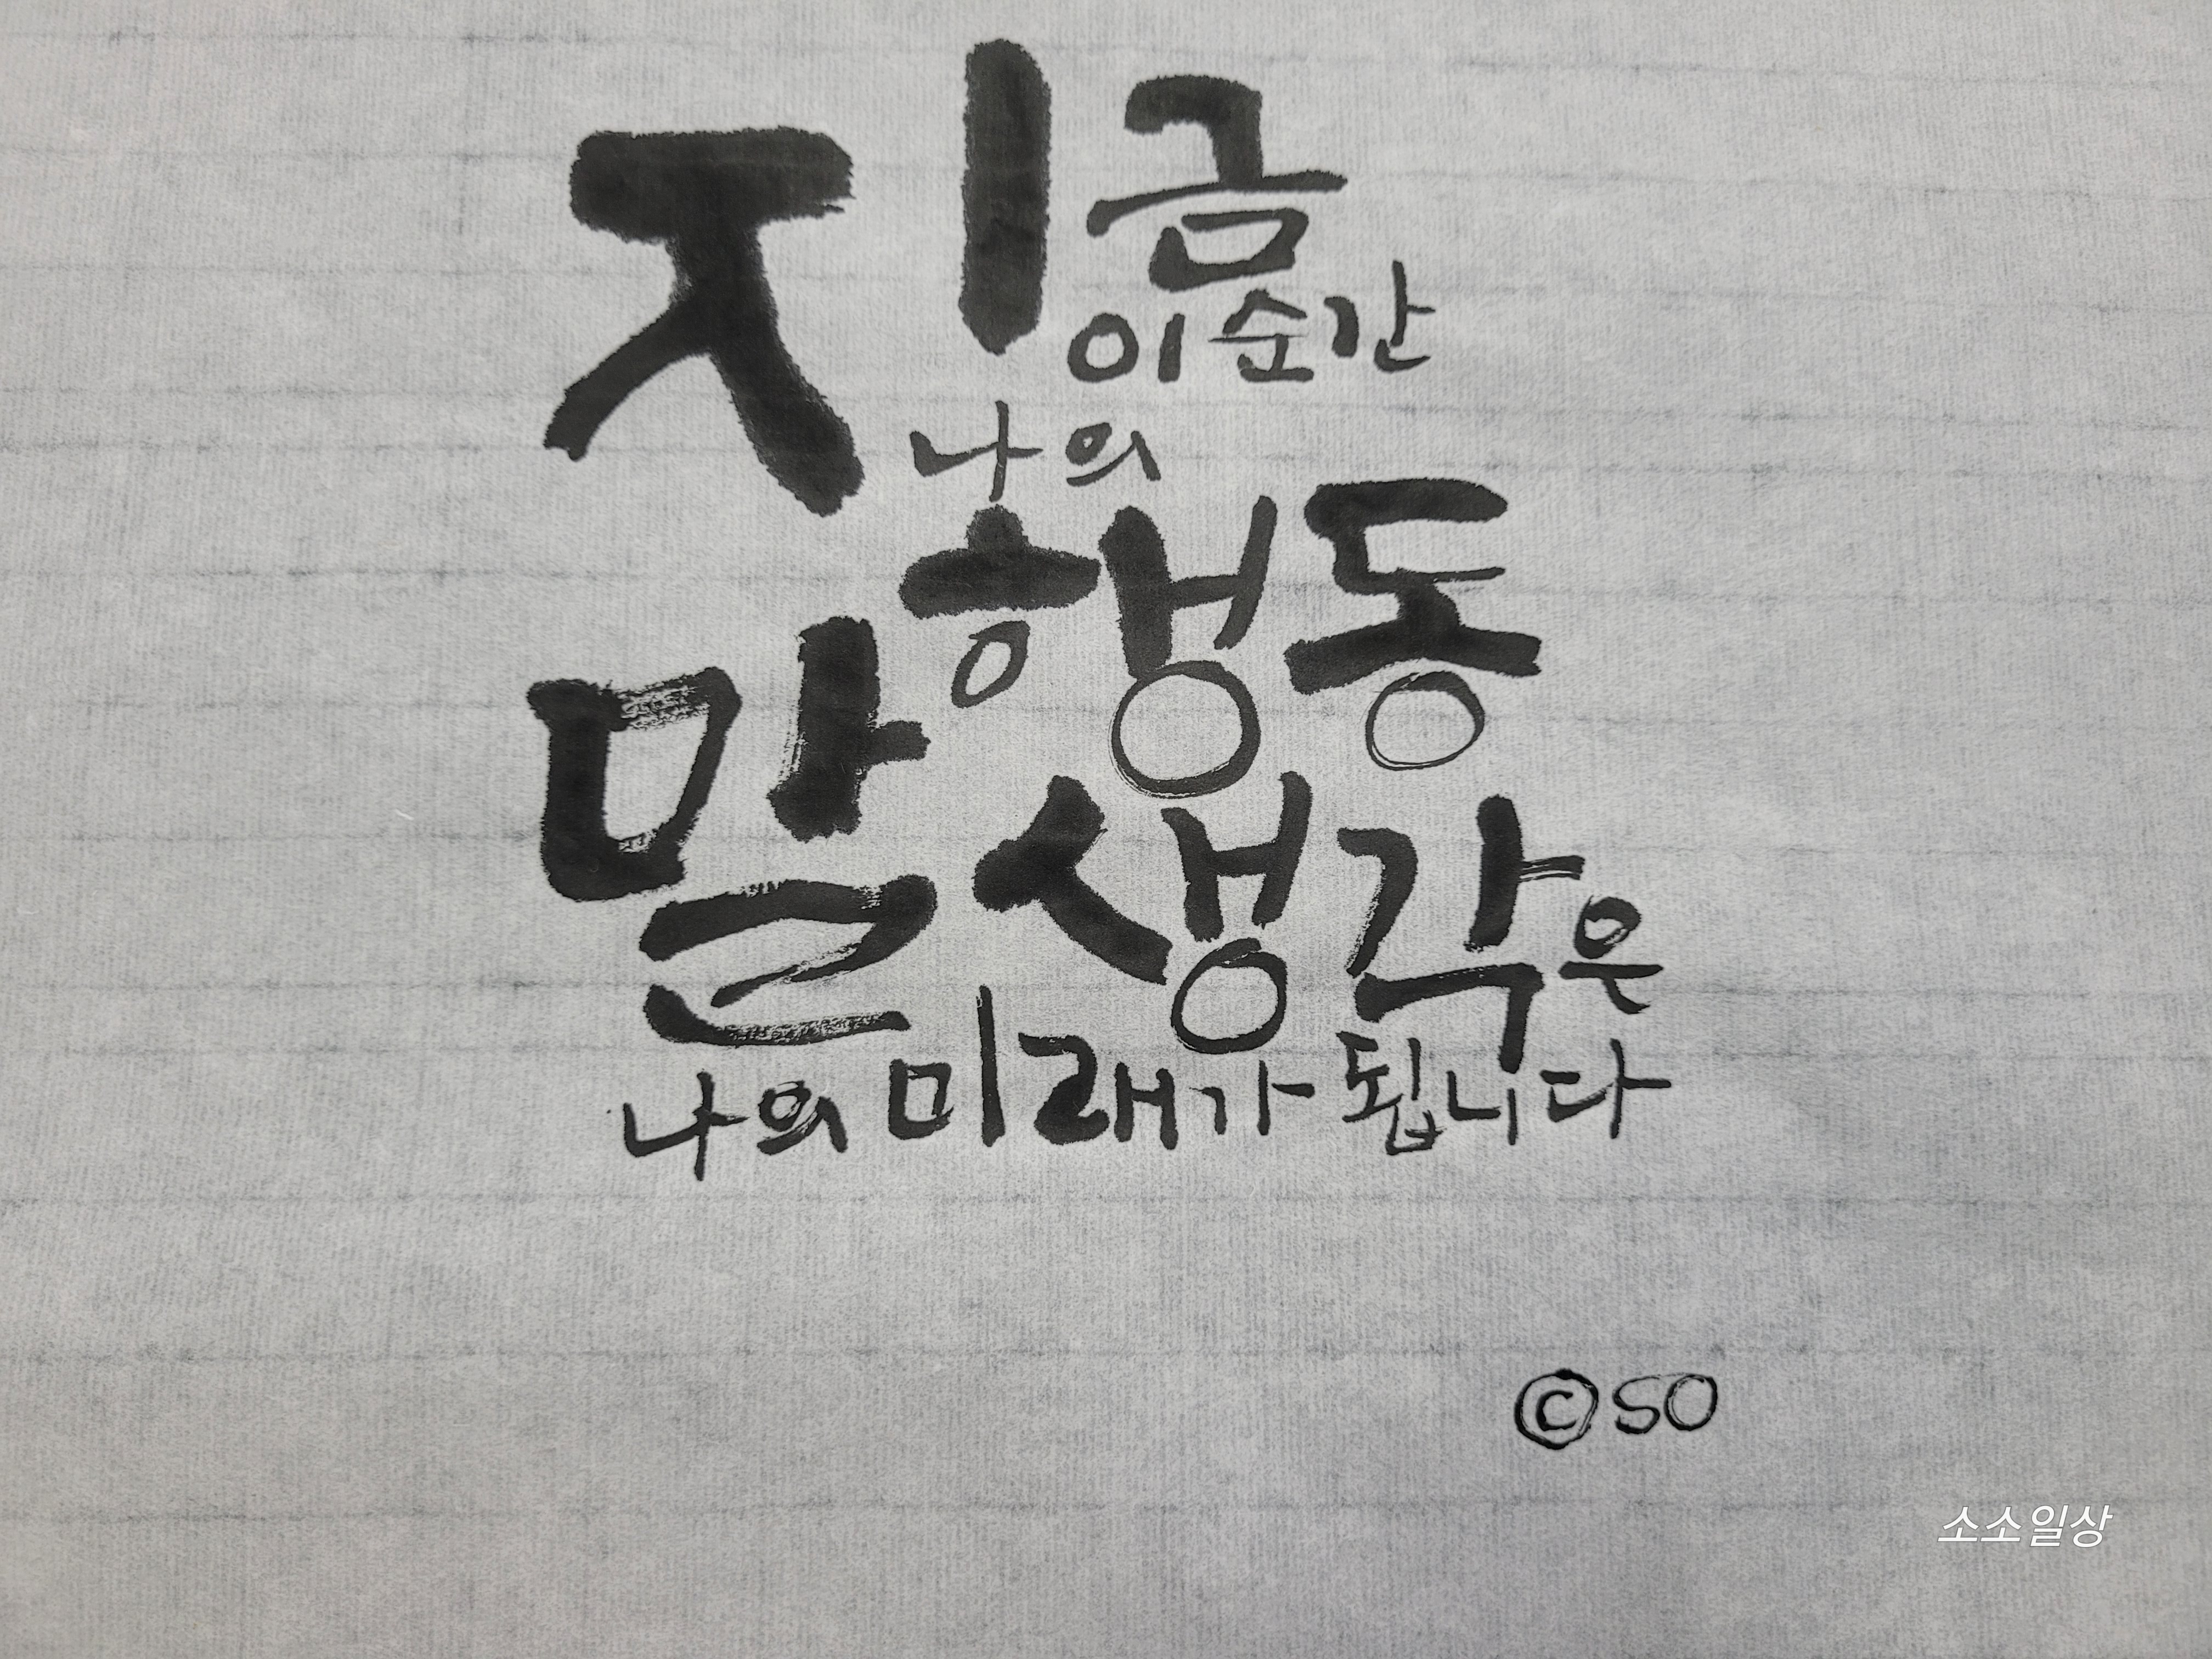 지금
이 순간
나의
행동
말 생각은
나의 미래가 됩니다
©SO
소소일상